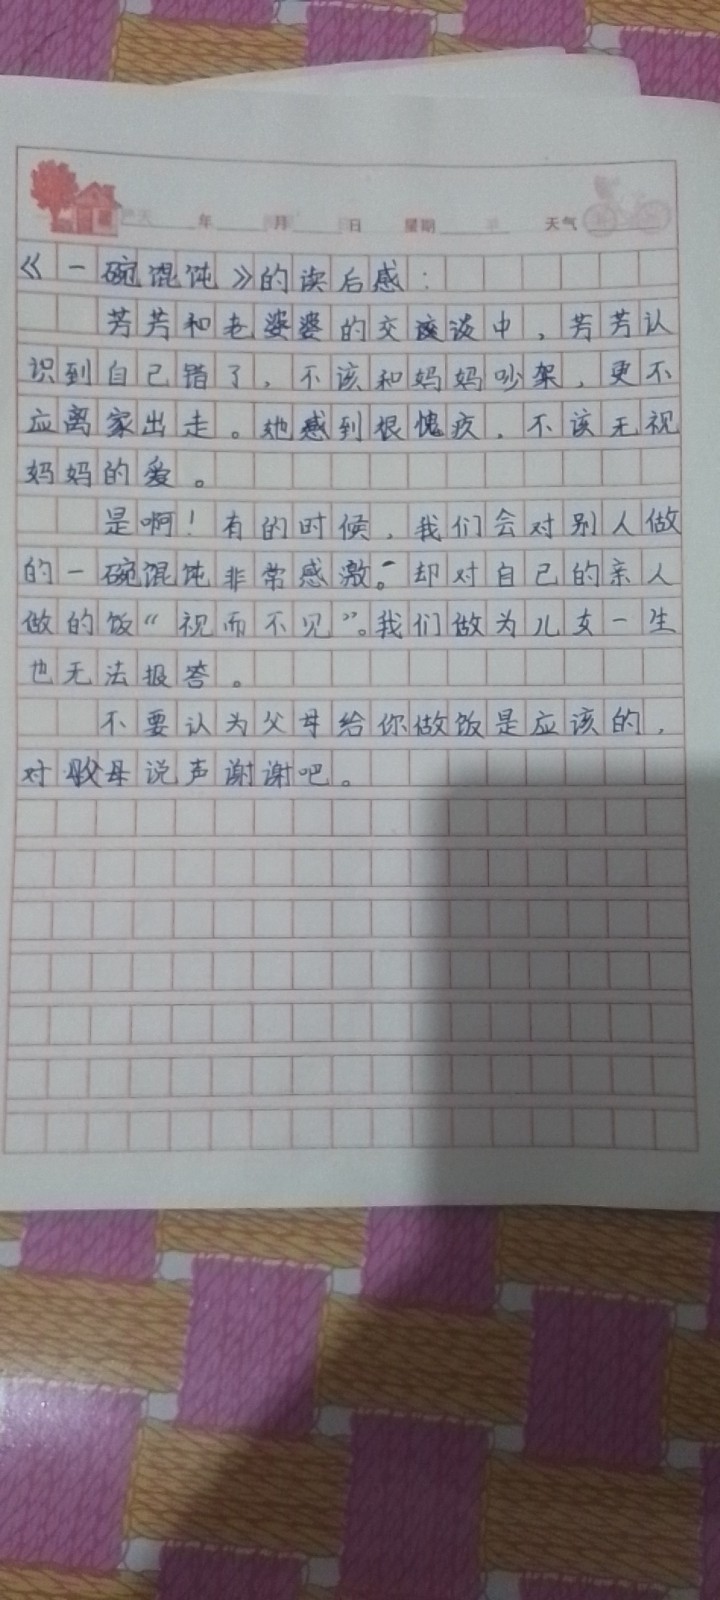 年 月 日 星期 天气
《一碗混饨》的读后感：
芳芳和老婆婆的交谈中，芳芳认
识到自己错了，不该和妈妈吵架，更不
应离家出走。她感到很愧疚，不该无视
妈妈的爱。
是啊！有的时候，我们会对别人做
的一碗混饨非常感激。却对自己的亲人
做的饭“视而不见”。我们做为儿女一生
也无法报答。
不要认为父母给你做饭是应该的，
对父母说声谢谢吧。